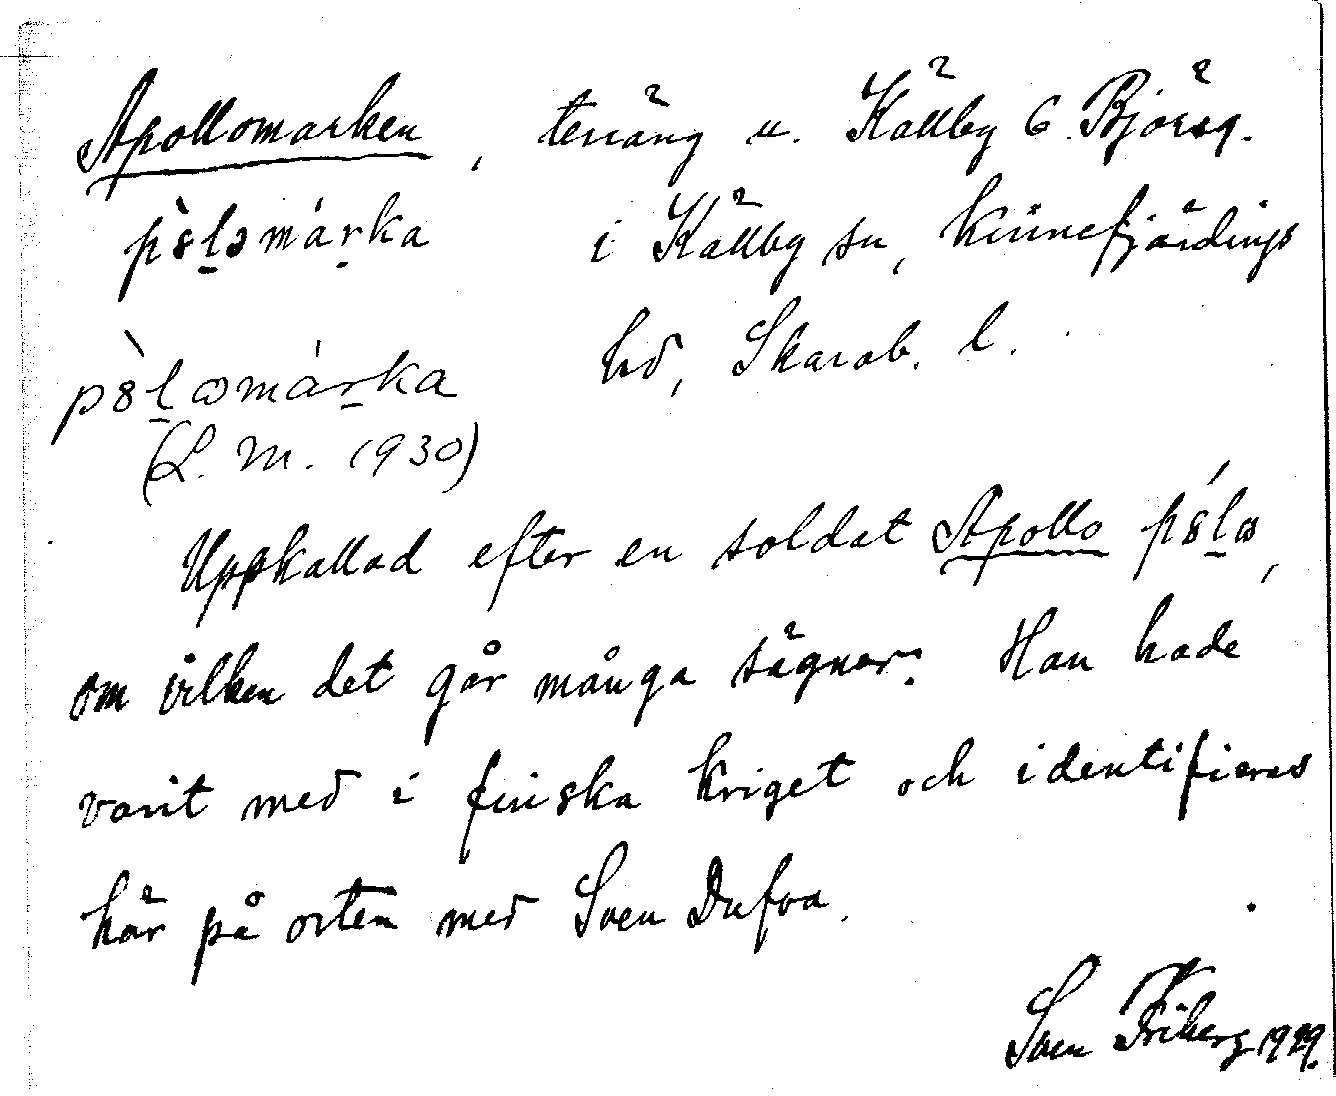 Apollomarken, terräng u. Källby 6 Björsg.
i Källby sn, Kinnefjärdings
hd, Skarab. l.
(L. M. 1930)
Uppkallad efter en soldat Apollo
om vilken det går många sägner. Han hade
varit med i finska kriget och identifieras
här på orten med Sven Dufva.
Sven Friberg 1929.